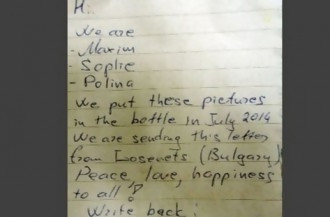 Hi!
We are
- Maxim
- Sophie
- Polina
We put these pictures
in the bottle in July 2014
We are sending this letter
from Losevets (Bulgary)
Peace, love, happiness
to all!
Write back!